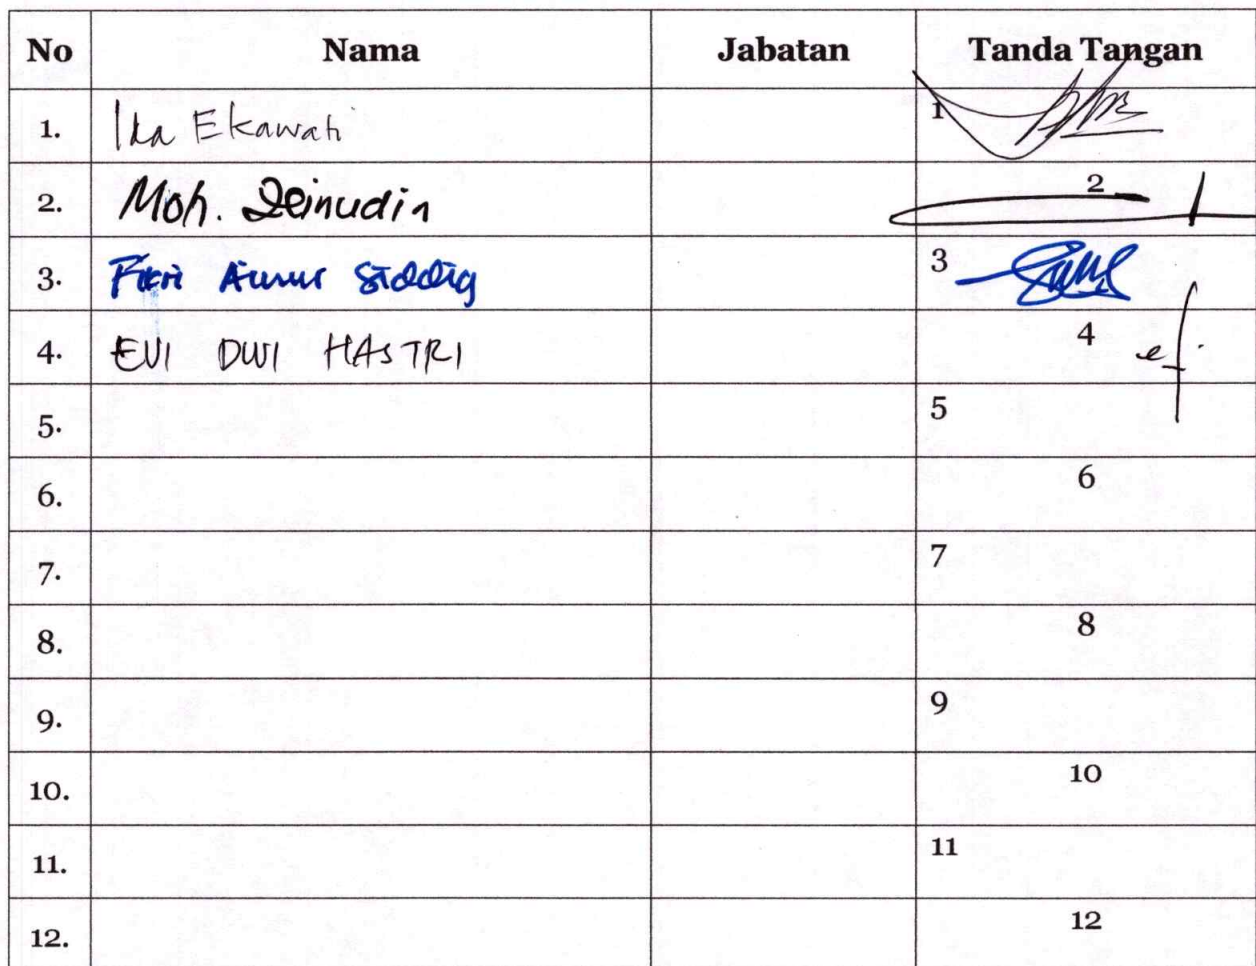 No Nama Jabatan Tanda Tangan
1. Ika Ekawati 1
2. Moh. Zeinudin 2
3. Fikri Siddiq 3
4. EVI DWI HASTRI 4
5. 5
6. 6
7. 7
8. 8
9. 9
10. 10
11. 11
12. 12